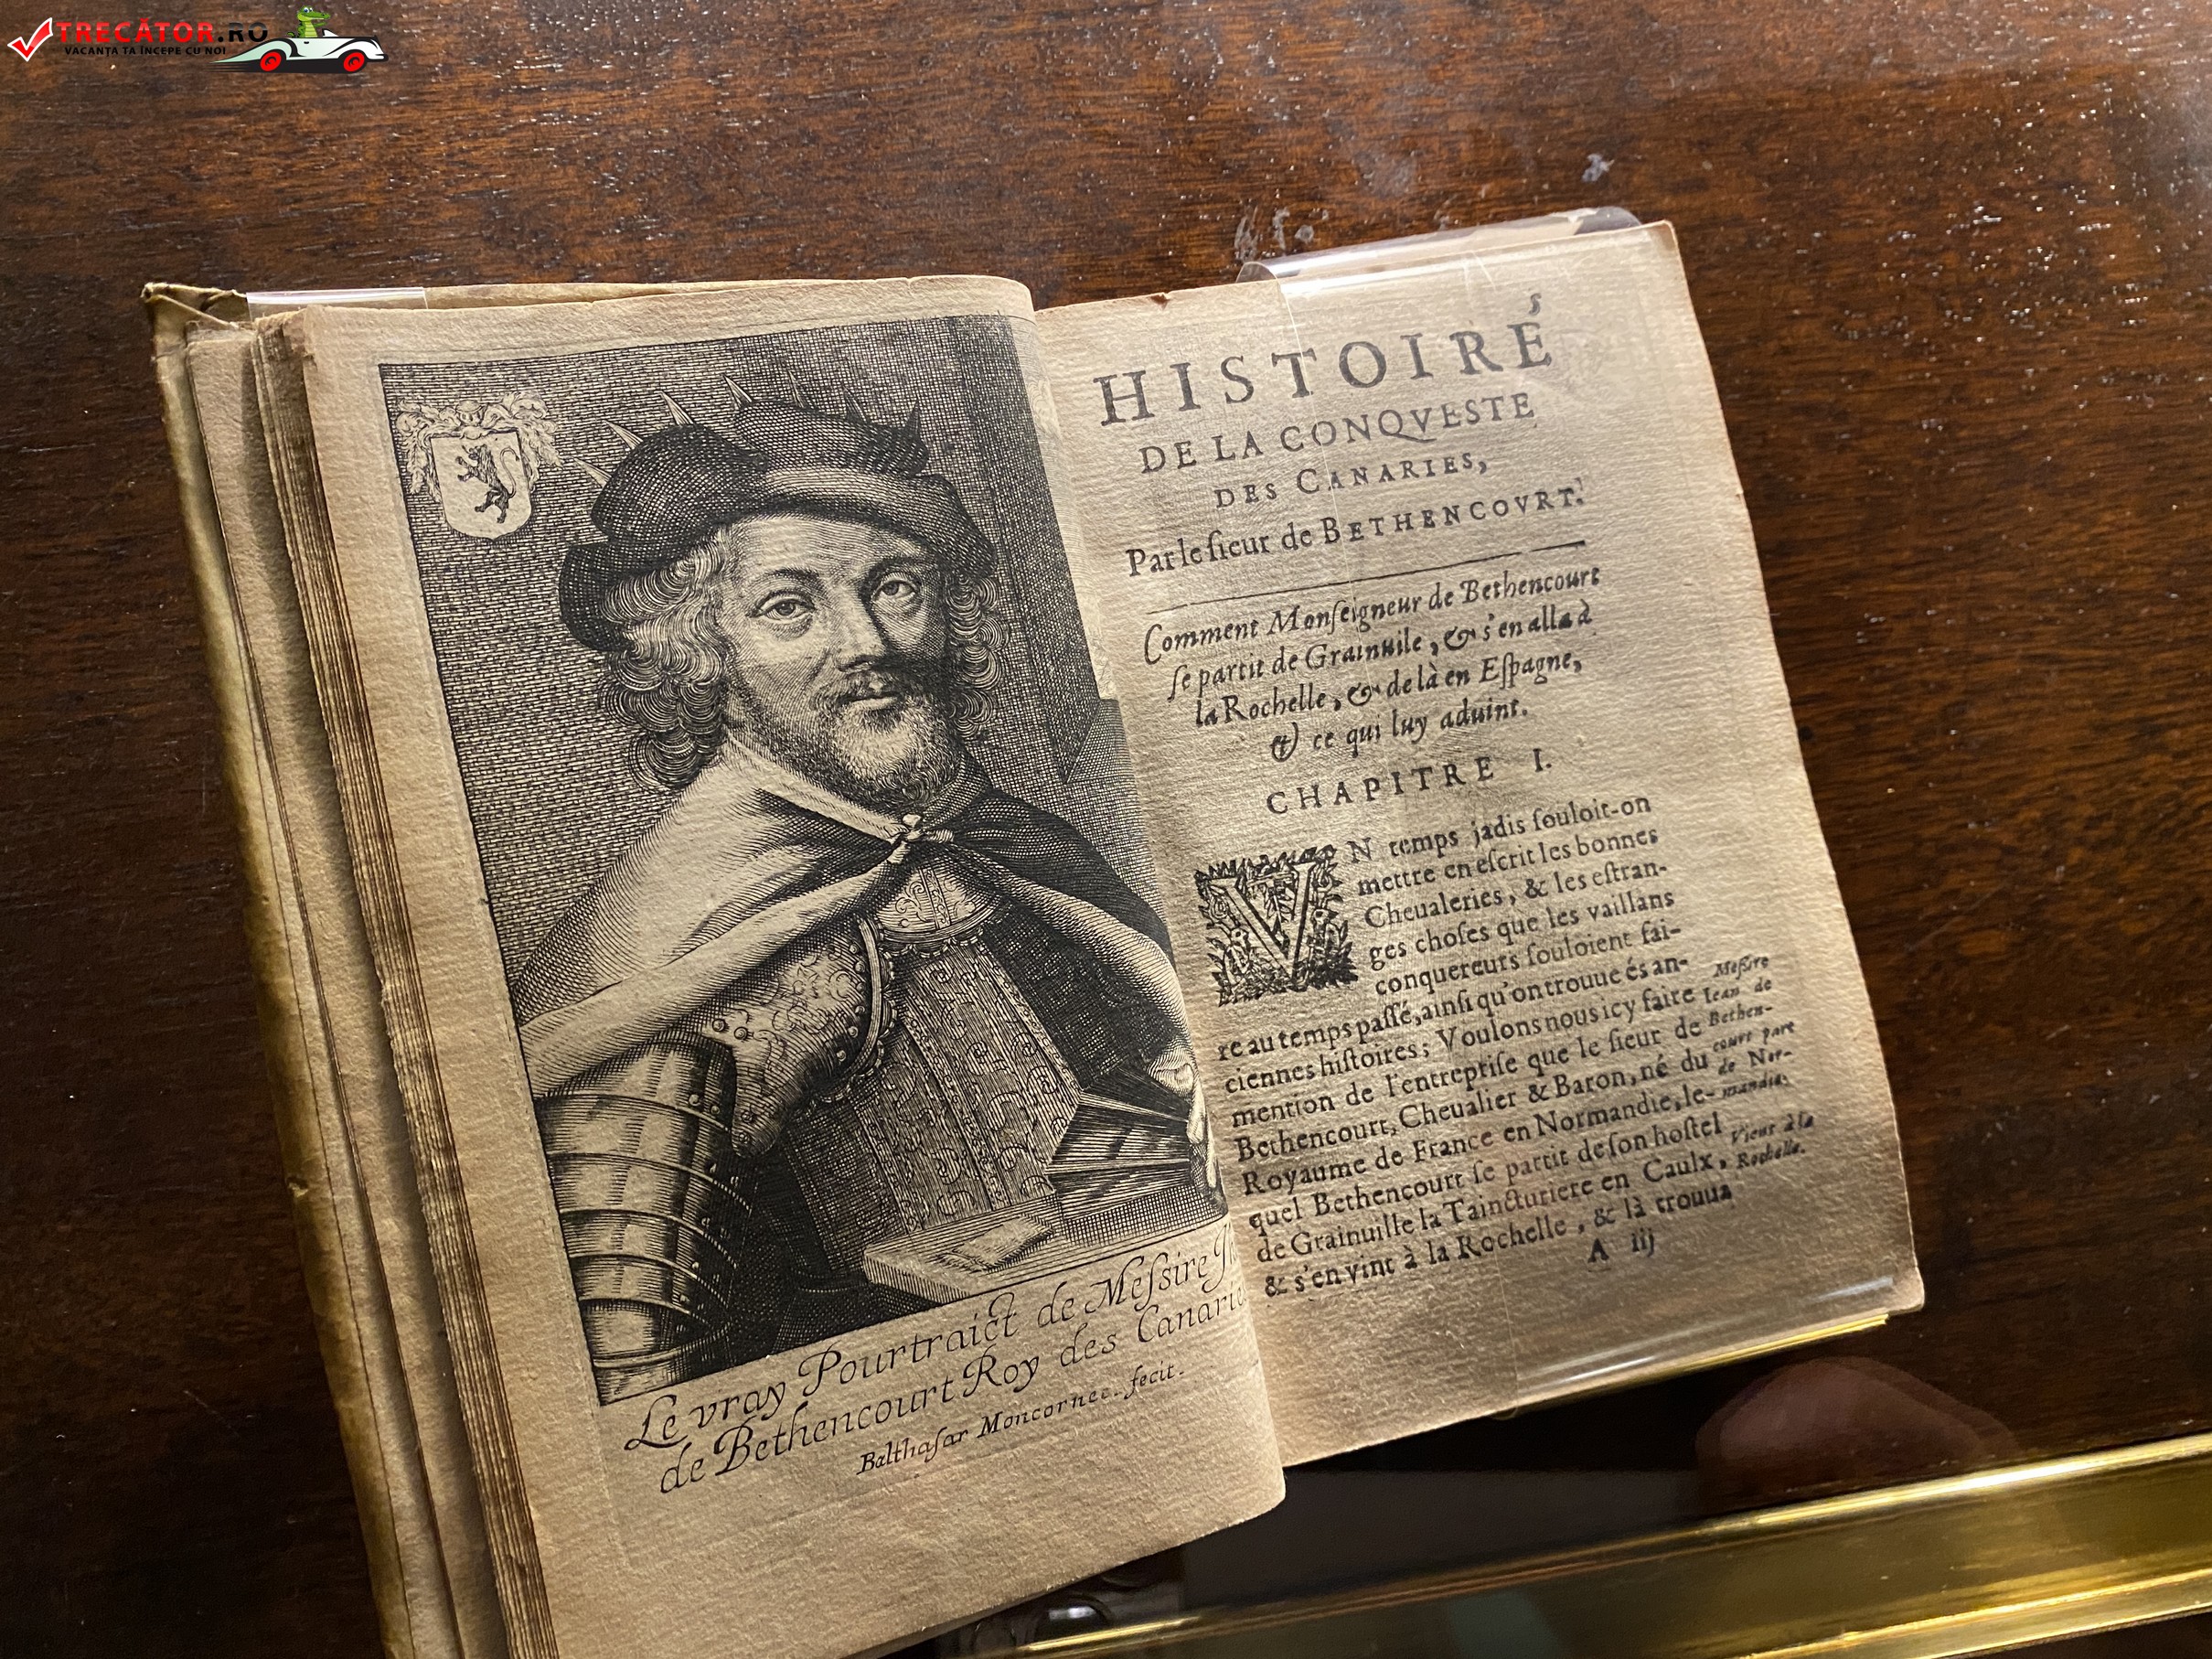 TRECĂTOR.RO
VACANȚA TA ÎNCEPE CU NOI
Le vray Pourtraict de Meſsire
de Bethencourt Roy des Canarie
Balthaſar Moncornec. fecit.
HISTOIRE
DE LA CONQVESTE
DES CANARIES,
Par le ſieur de BETHENCOVRT.
Comment Monſeigneur de Bethencourt
ſe partit de Grainuile, & s'en alla à
la Rochelle, & de là en Eſpagne,
& ce qui luy aduint.
CHAPITRE I.
VN temps jadis ſouloit-on
mettre en eſcrit les bonnes
Cheualeries, & les eſtran-
ges choſes que les vaillans
conquereurs ſouloient fai-
re au temps paſſé, ainſi qu'on trouue és an-
ciennes hiſtoires; Voulons nous icy faire
mention de l'entrepriſe que le ſieur de
Bethencourt, Cheualier & Baron, né du
Royaume de France en Normandie, le-
quel Bethencourt ſe partit de ſon hoſtel
de Grainuille la Taincturiere en Caulx,
& s'en vint à la Rochelle, & là trouua
A iij
Meſsire
Iean de
Bethen-
court part
de Nor-
mandie.
Vient à la
Rochelle.